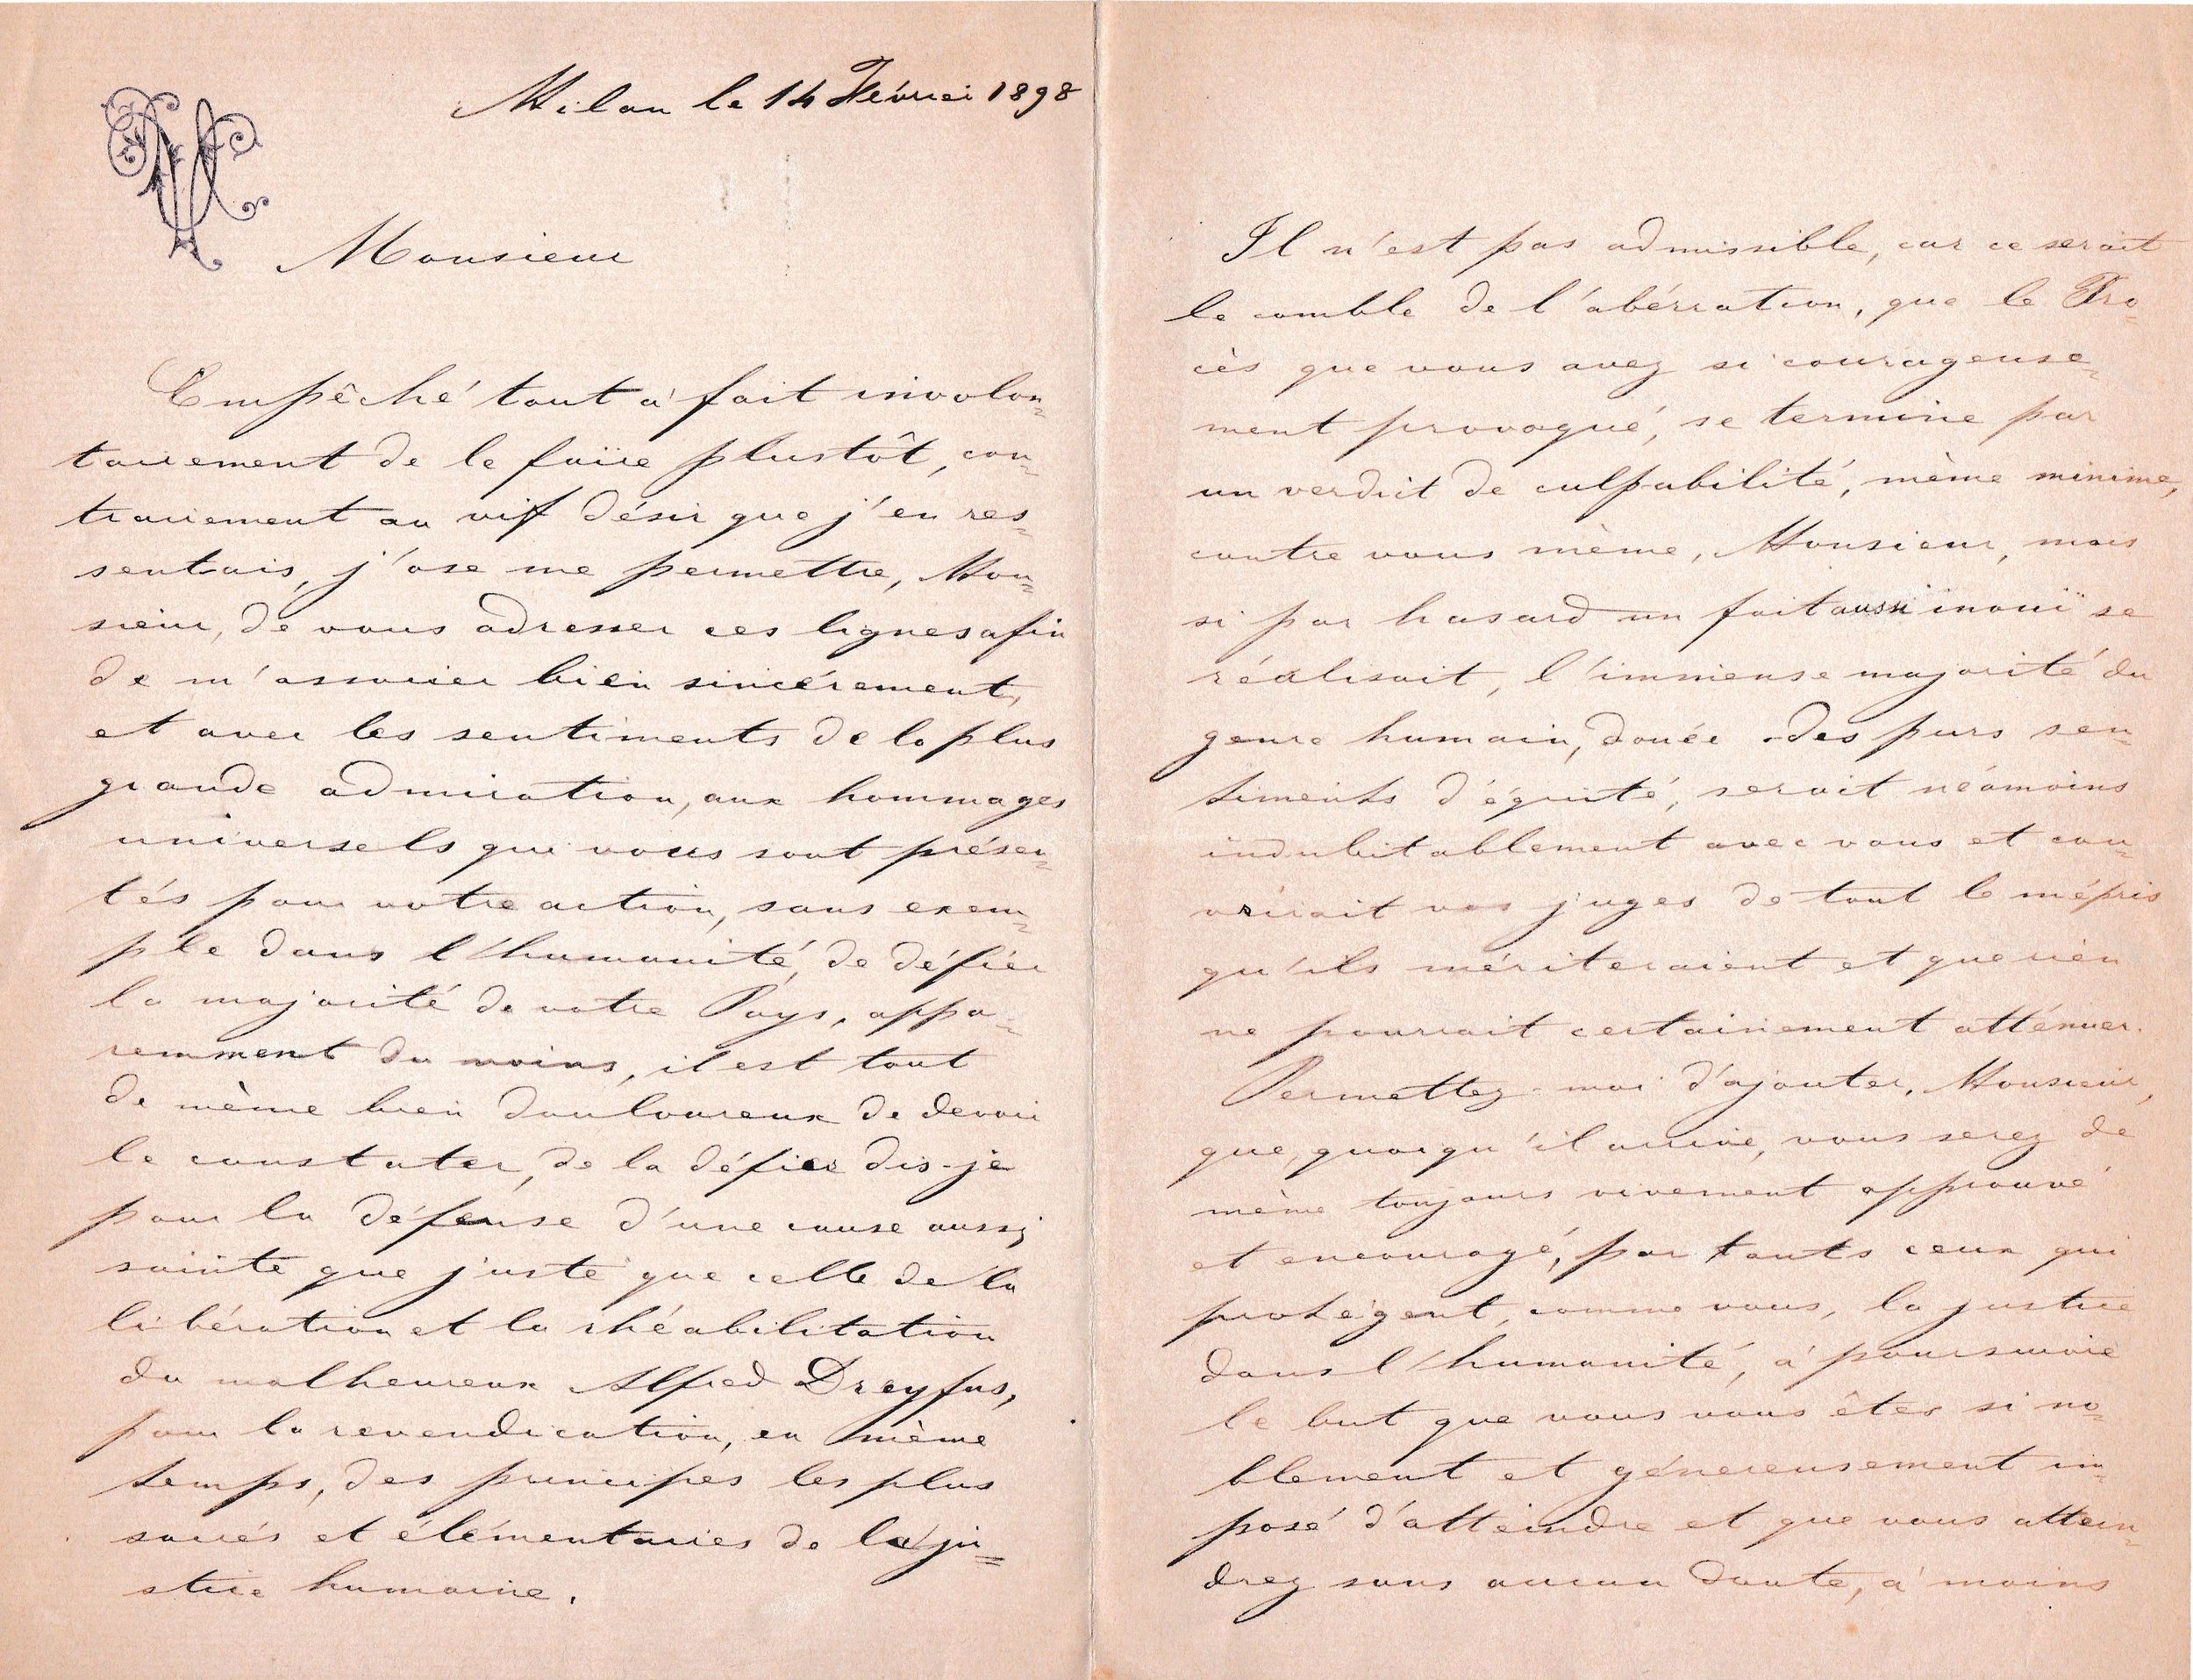 Milan le 14 Février 1898
Monsieur
Empêché tout à fait involon=
tairement de le faire plustôt, con=
trairement au vif désir que j'en res=
sentais, j'ose me permettre, Mon=
sieur, de vous adresser ces lignes afin
de m'associer bien sincérement,
et avec les sentiments de la plus
grande admiration, aux hommages
universels qui vous sont présen=
tés pour votre action, sans exem=
ple dans l'humanité, de défier
la majorité de votre Pays, appa=
remment du moins, il est tout
de mème bien douloureux de devoir
le constater, de la défier dis-je
pour la défense d'une cause aussi
sainte que juste que celle de la
libération et la rhéabilitation
du malheureux Alfred Dreyfus,
pour la revendication, en mème
temps, des principes les plus
sacrés et élémentaires de la ju=
stice humaine.
Il n'est pas admissible, car ce serait
le comble de l'abérration, que le Pro=
cès que vous avez si courageuse=
ment provoqué, se termine par
un verdict de culpabilité, mème minime,
contre vous mème, Monsieur, mais
si par hasard un fait aussi inouï se
réalisait, l'immense majorité du
genre humain, douée des purs sen=
timents d'équité, serait néamoins
indubitablement avec vous et cou=
vrirait vos juges de tout le mépris
qu'ils mériteraient et que rien
ne pourrait certainement atténuer.
Permettez-moi d'ajouter, Monsieur,
que, quoiqu'il arrive, vous serez de
mème toujours vivement approuvé
et encouragé, par touts ceux qui
protègent, comme vous, la justice
dans l'humanité, à poursuivre
le but que vous vous êtes si no=
blement et génereusement im=
posé d'atteindre et que vous attein=
drez sans aucun doute, à moins